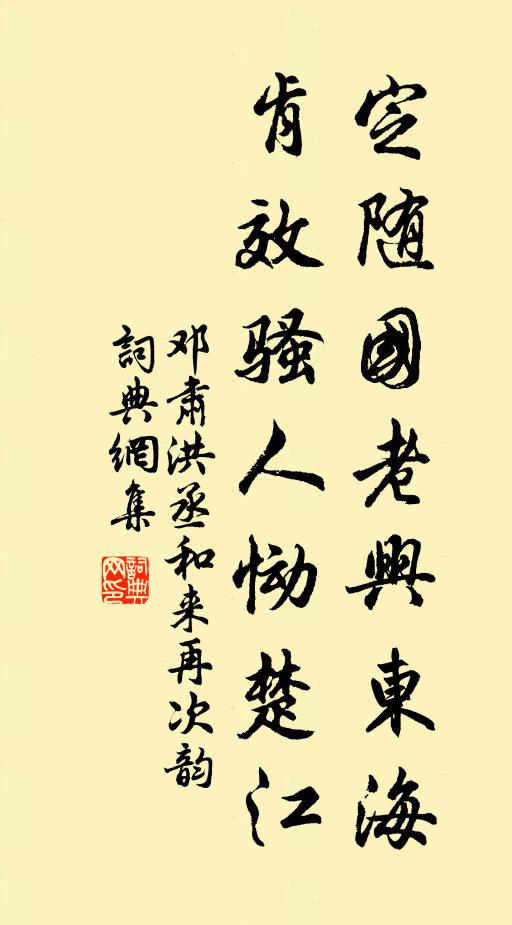 定随國老興東海
肯效骚人恸楚江
邓肃洪丞和来再次韵
詞典網集
詞典网印